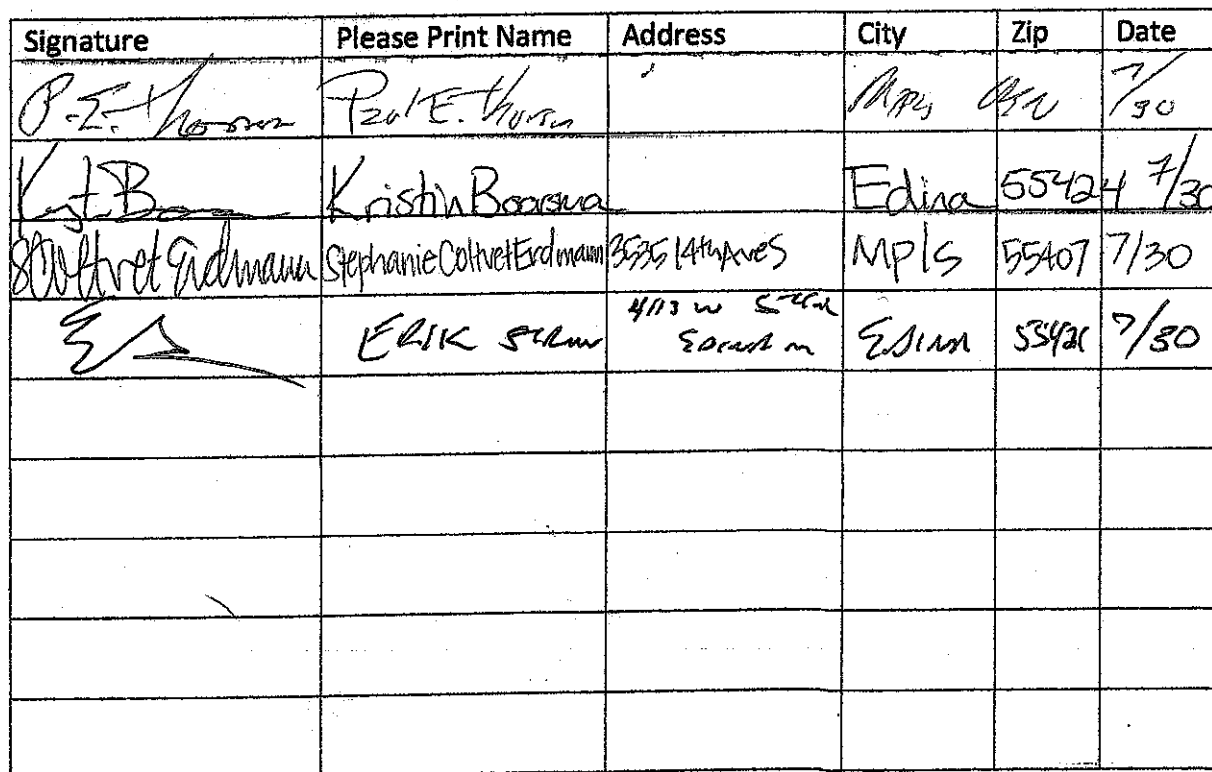 Signature Please Print Name Address City Zip Date
P.E. Paul E. Mpls 7/30
Kristin Edina 55424 7/30
SColtvet Erdmann Stephanie Coltvet Erdmann 3535 14th Ave S Mpls 55407 7/30
ERIK 4113 W
Edina 7/30